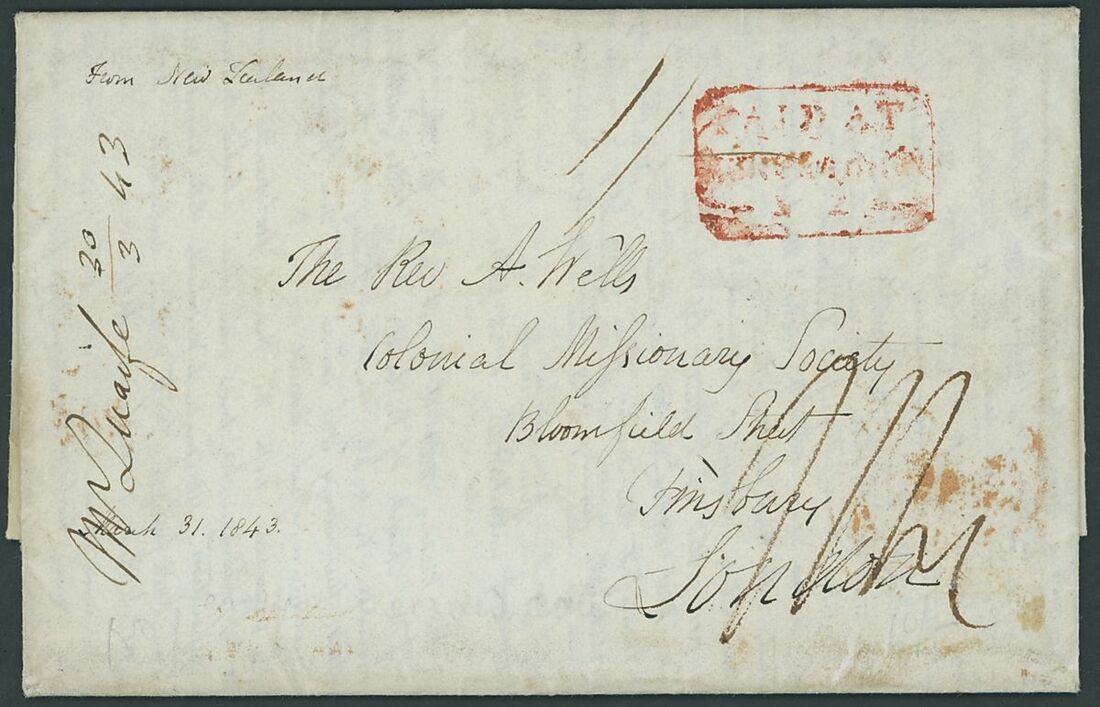 From New Zealand
PAID AT
The Rev A. Wells
Colonial Missionary Society
Bloomfield Street
Finsbury
London
Quaife 30/3 43
March 31. 1843.